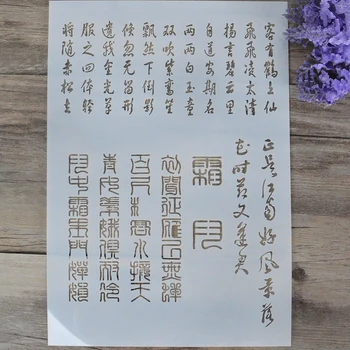 客有鶴上仙
飛飛凌太清
揚言碧云里
自道安期名
两两白玉童
双吹紫鸞笙
飄然下倒影
倏忽无留形
遺我金光草
服之四体輕
將隨赤松去
正是江南好風景落
花时节又逢君
霜月
初聞征雁已無蟬
百尺樓高水接天
青女素娥俱耐冷
月中霜裏鬥嬋娟